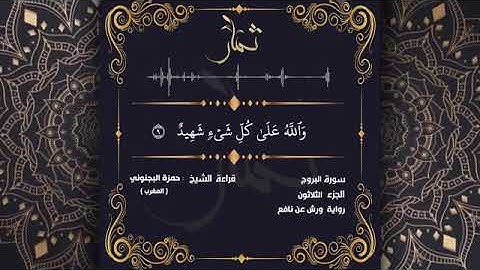 ثمار
وَٱللَّهُ عَلَىٰ كُلِّ شَىْءٍ شَهِيدٌ ۝٩
سورة البروج
قراءة الشيخ : حمزة البجنوني
( المغرب )
الجزء الثلاثون
رواية ورش عن نافع